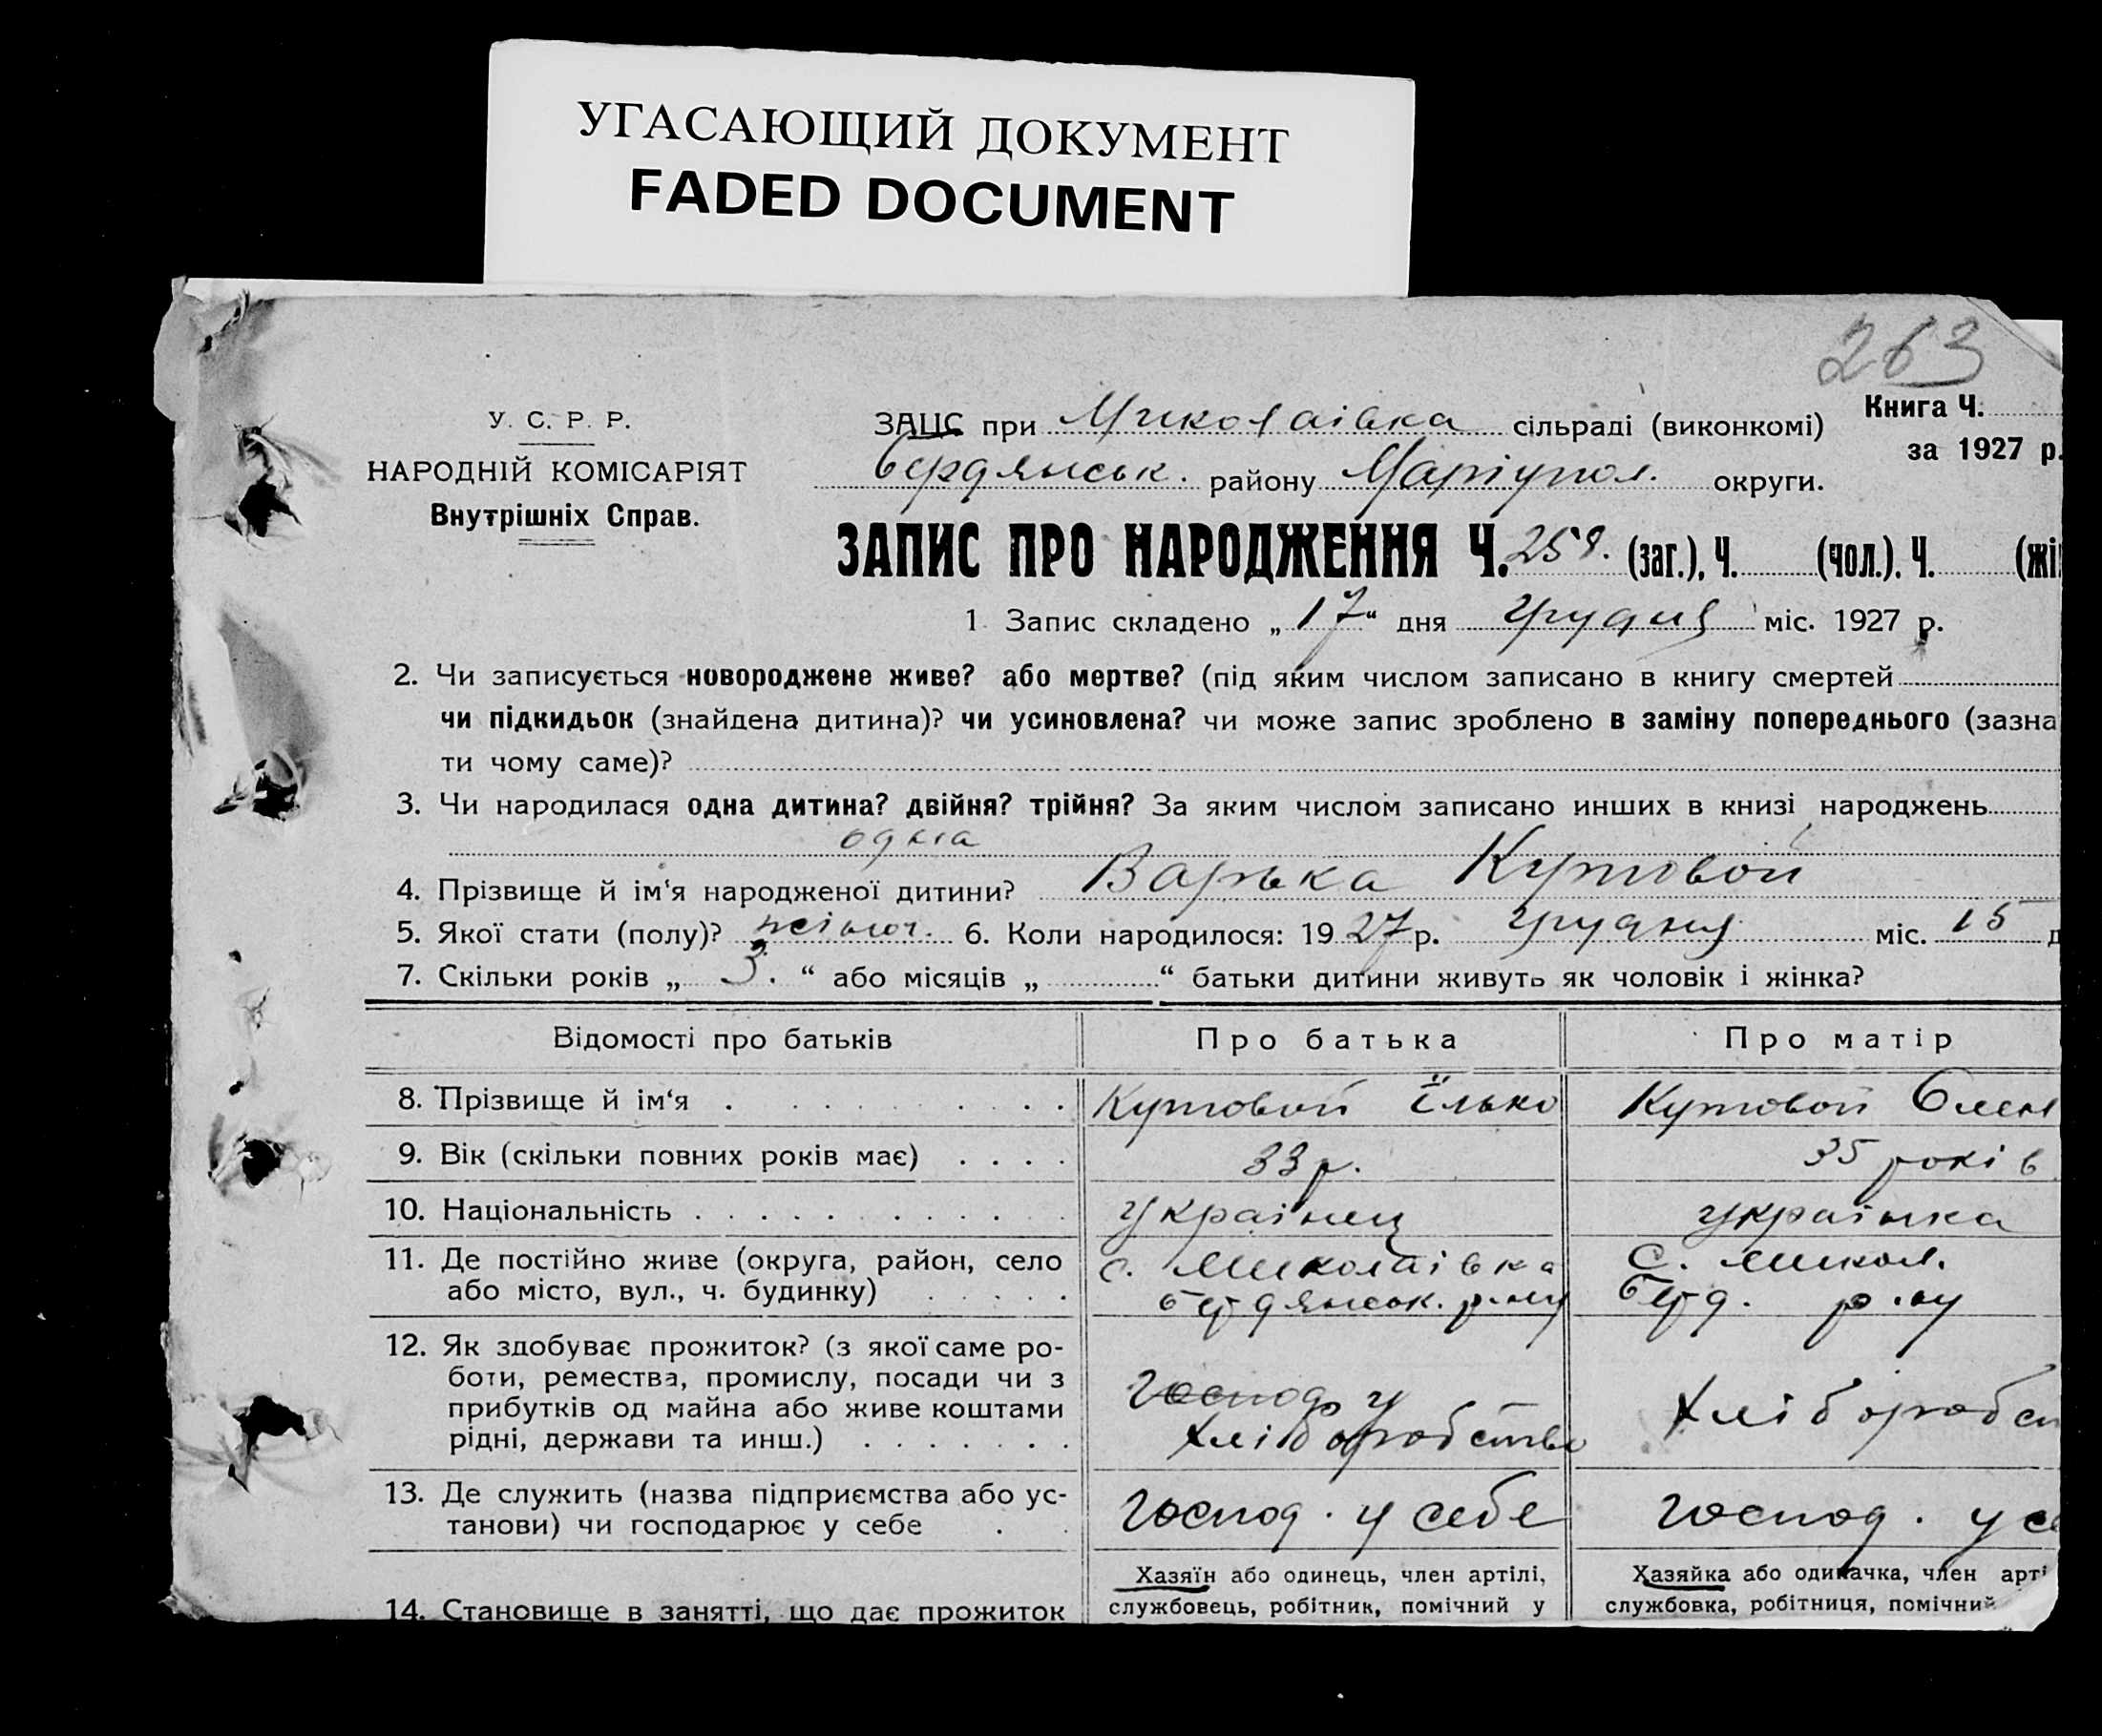 УГАСАЮЩИЙ ДОКУМЕНТ
FADED DOCUMENT
263
У. С. Р. Р.
НАРОДНІЙ КОМІСАРІЯТ
Внутрішніх Справ.
ЗАЦС при Миколаівка сільраді (виконкомі)
Книга Ч.
за 1927 р.
Бердянськ. району Маріупол. округи.
ЗАПИС ПРО НАРОДЖЕННЯ Ч. 258. (заг.), Ч. (чол.). Ч. (жі
1. Запис складено „ 17 “ дня грудня міс. 1927 р.
2. Чи записується новороджене живе? або мертве? (під яким числом записано в книгу смертей
чи підкидьок (знайдена дитина)? чи усиновлена? чи може запис зроблено в заміну попереднього (зазна
ти чому саме)?
3. Чи народилася одна дитина? двійня? трійня? За яким числом записано инших в книзі народжень
одна
4. Прізвище й ім‘я народженої дитини? Варька Кутовой
5. Якої стати (полу)? жіноч. 6. Коли народилося: 1927 р. грудня міс. 15 д
7. Скільки років „ 3. “ або місяців „ “ батьки дитини живуть як чоловік і жінка?
Відомості про батьків Про батька Про матір
8. Прізвище й ім‘я Кутовой Їлько Кутовой Олен
9. Вік (скільки повних років має) 33 р. 35 років
10. Національність украінец украінка
11. Де постійно живе (округа, район, село с. Миколаівка С. Микол.
або місто, вул., ч. будинку) бердянськ. р-ну Берд. р-ну
12. Як здобуває прожиток? (з якої саме ро-
боти, ремества, промислу, посади чи з
прибутків од майна або живе коштами Господ у Хліборобст
рідні, держави та инш.) Хліборобство
13. Де служить (назва підприємства або ус- Господ. у себе Господ. у се
танови) чи господарює у себе
Хазяїн або одинець, член артілі, Хазяйка або одиначка, член арті
14. Становище в занятті, що дає прожиток службовець, робітник, помічний у службовка, робітниця, помічний